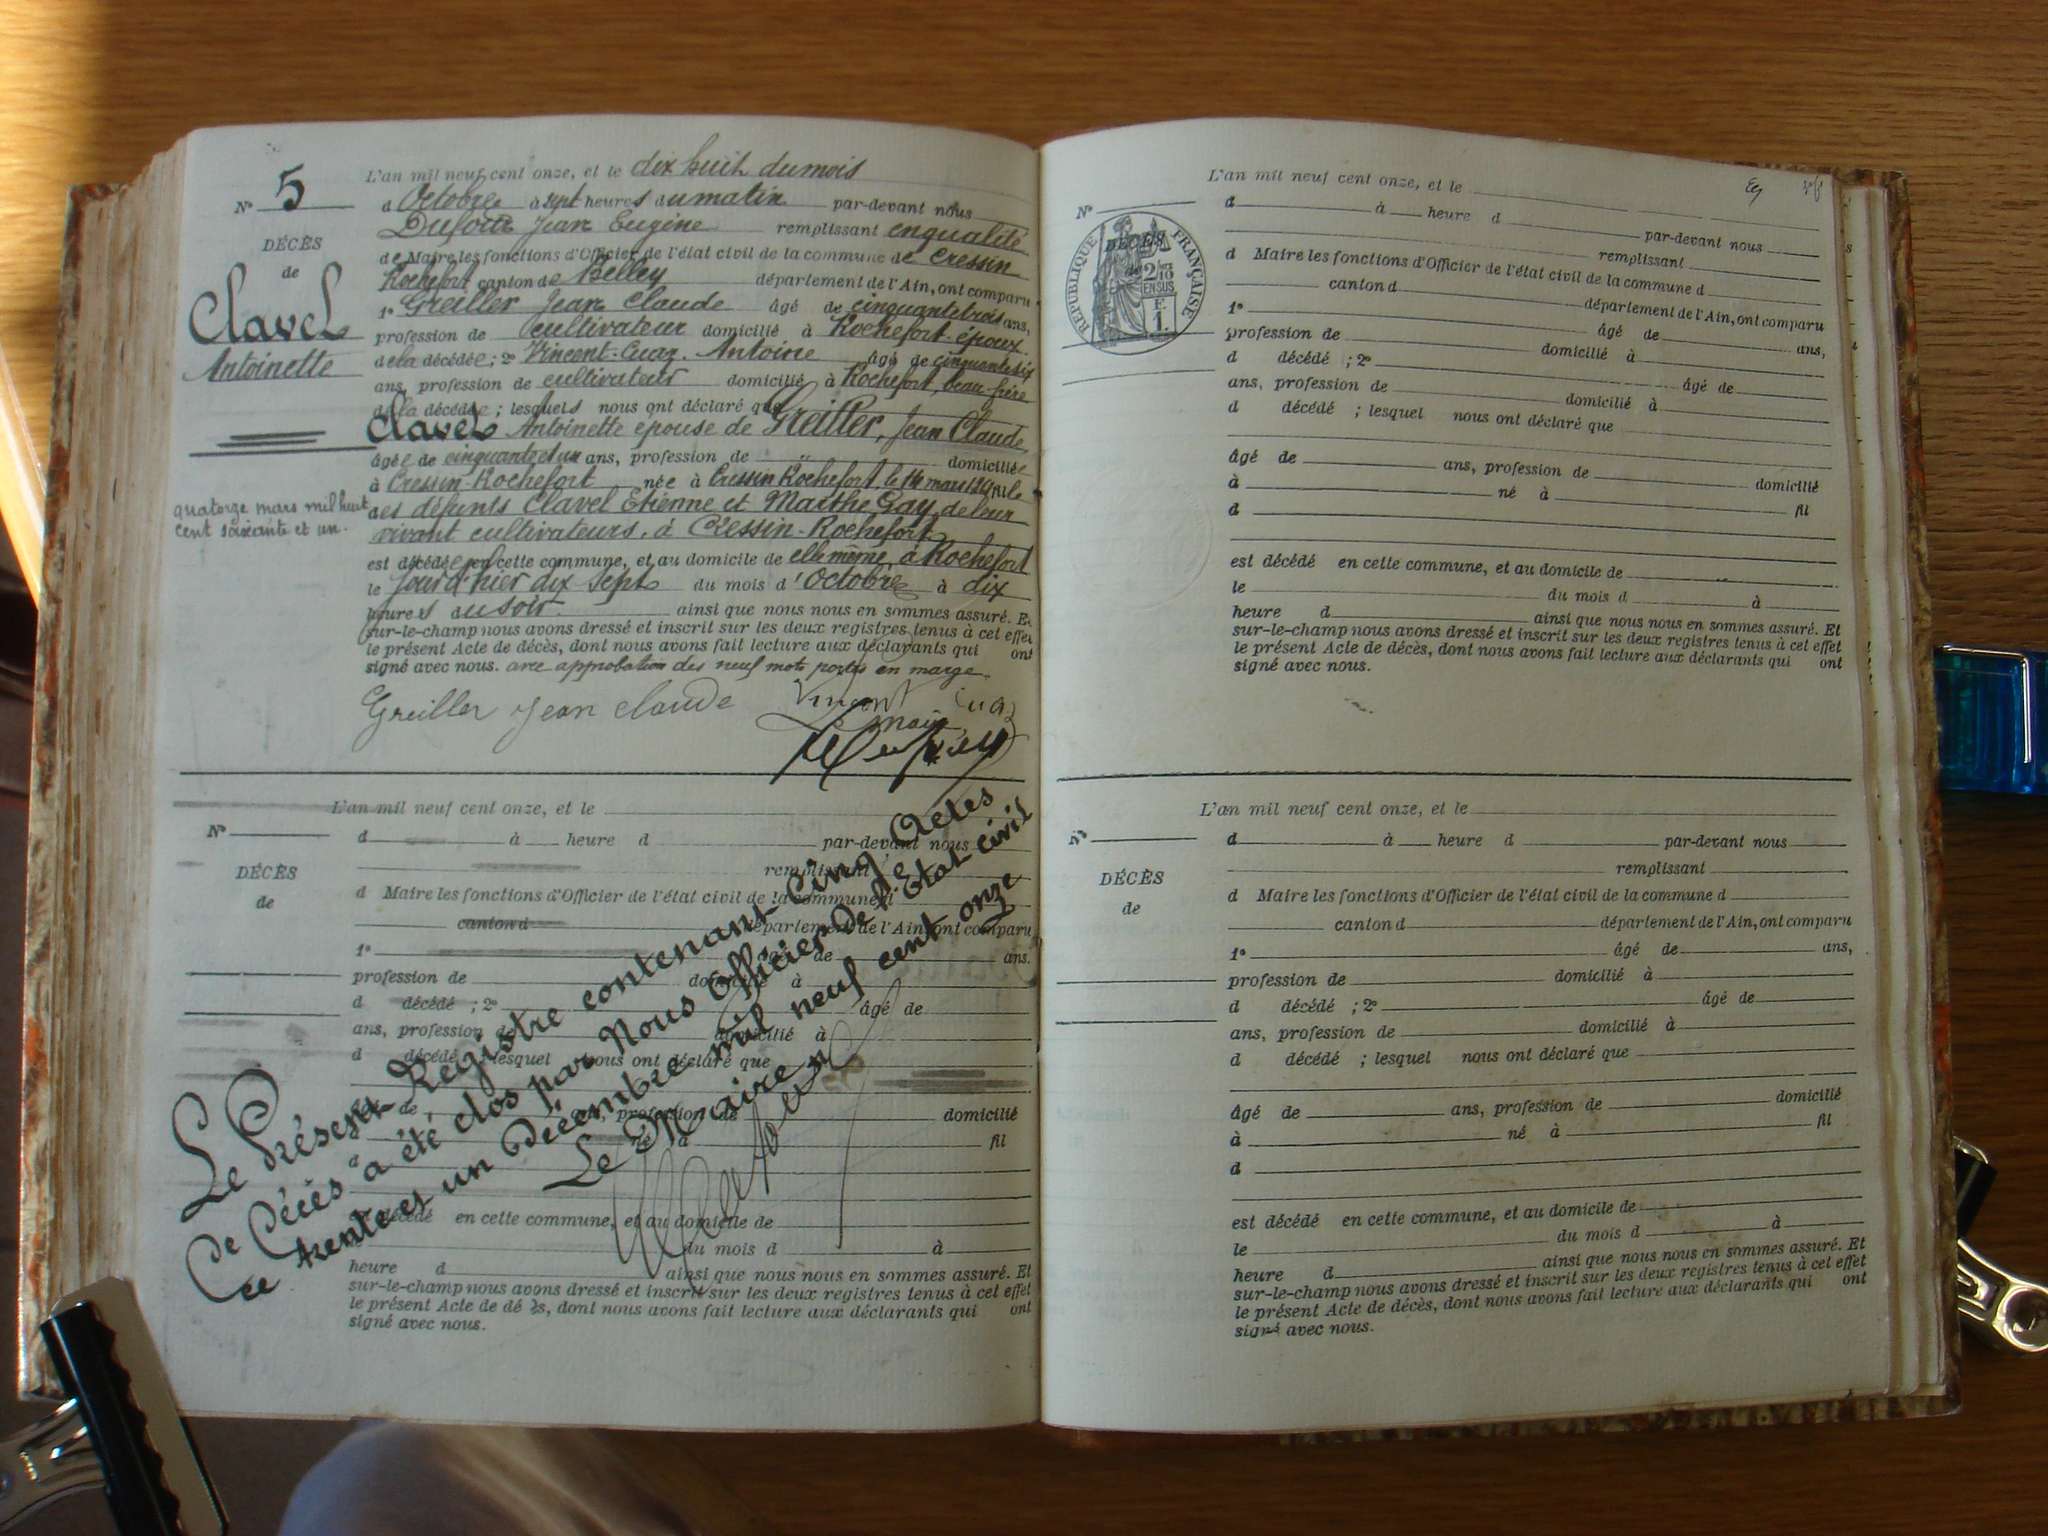 L'an mil neuf cent onze, et le dix huit du mois
N° 5
d'Octobre à sept heures du matin par-devant nous
Dufour Jean Eugène remplissant en qualité
DÉCÈS
de Maire les fonctions d'Officier de l'état civil de la commune de Cressin
de
Rochefort canton de Belley département de l'Ain, ont comparu
Clavel
1° Greiller Jean Claude âgé de cinquante trois ans,
profession de cultivateur domicilié à Rochefort époux
Antoinette
de la décédée ; 2° Vincent-Cuaz Antoine âgé de cinquante six
ans, profession de cultivateur domicilié à Rochefort, beau frère
de la décédée ; lesquels nous ont déclaré que
Clavel Antoinette épouse de Greiller, Jean Claude
âgée de cinquante et un ans, profession de " domiciliée
à Cressin-Rochefort née à Cressin Rochefort, le 14 mars fille
quatorze mars mil huit
cent soixante et un.
des défunts Clavel Etienne et Marthe Gay, de leur
vivant cultivateurs, à Cressin-Rochefort
est décédée en cette commune, et au domicile de elle même, à Rochefort
le jour d'hier dix sept du mois d'Octobre à dix
heures du soir ainsi que nous nous en sommes assuré. Et
sur-le-champ nous avons dressé et inscrit sur les deux registres tenus à cet effet
le présent Acte de décès, dont nous avons fait lecture aux déclarants qui ont
signé avec nous. avec approbation des neuf mots portés en marge.
Greiller Jean Claude Vincent Cuaz
Le maire
L'an mil neuf cent onze, et le
N°
d à heure d par-devant nous
remplissant
DÉCÈS
d Maire les fonctions d'Officier de l'état civil de la commune d
de
canton d département de l'Ain, ont comparu
1° âgé de ans.
profession de domicilié à
d décédé ; 2° âgé de
ans, profession de domicilié à
d décédé ; lesquel nous ont déclaré que
âgé de ans, profession de domicilié
à né à fil
d
est décédé en cette commune, et au domicile de
le du mois d à
heure d ainsi que nous nous en sommes assuré. Et
sur-le-champ nous avons dressé et inscrit sur les deux registres tenus à cet effet
le présent Acte de décès, dont nous avons fait lecture aux déclarants qui ont
signé avec nous.
Le Présent Registre contenant Cinq Actes
de Décès a été clos par Nous Officier de l'Etat civil
ce trente et un Décembre mil neuf cent onze
Le Maire
L'an mil neuf cent onze, et le
N°
d à heure d
par-devant nous
RÉPUBLIQUE FRANÇAISE
DÉCÈS
de
2/10 EN SUS
F. 1.
remplissant
d Maire les fonctions d'Officier de l'état civil de la commune d
canton d département de l'Ain, ont comparu
1° âgé de ans,
profession de domicilié à
d décédé ; 2° âgé de
ans, profession de domicilié à
d décédé ; lesquel nous ont déclaré que
âgé de ans, profession de domicilié
à né à
d fil
est décédé en cette commune, et au domicile de
le du mois d à
heure d ainsi que nous nous en sommes assuré. Et
sur-le-champ nous avons dressé et inscrit sur les deux registres tenus à cet effet
le présent Acte de décès, dont nous avons fait lecture aux déclarants qui ont
signé avec nous.
L'an mil neuf cent onze, et le
N°
d à heure d par-devant nous
remplissant
DÉCÈS
d Maire les fonctions d'Officier de l'état civil de la commune d
de
canton d département de l'Ain, ont comparu
1° âgé de ans,
profession de domicilié à
d décédé ; 2° âgé de
ans, profession de domicilié à
d décédé ; lesquel nous ont déclaré que
âgé de ans, profession de domicilié
à né à fil
d
est décédé en cette commune, et au domicile de
le du mois d à
heure d ainsi que nous nous en sommes assuré. Et
sur-le-champ nous avons dressé et inscrit sur les deux registres tenus à cet effet
le présent Acte de décès, dont nous avons fait lecture aux déclarants qui ont
signé avec nous.